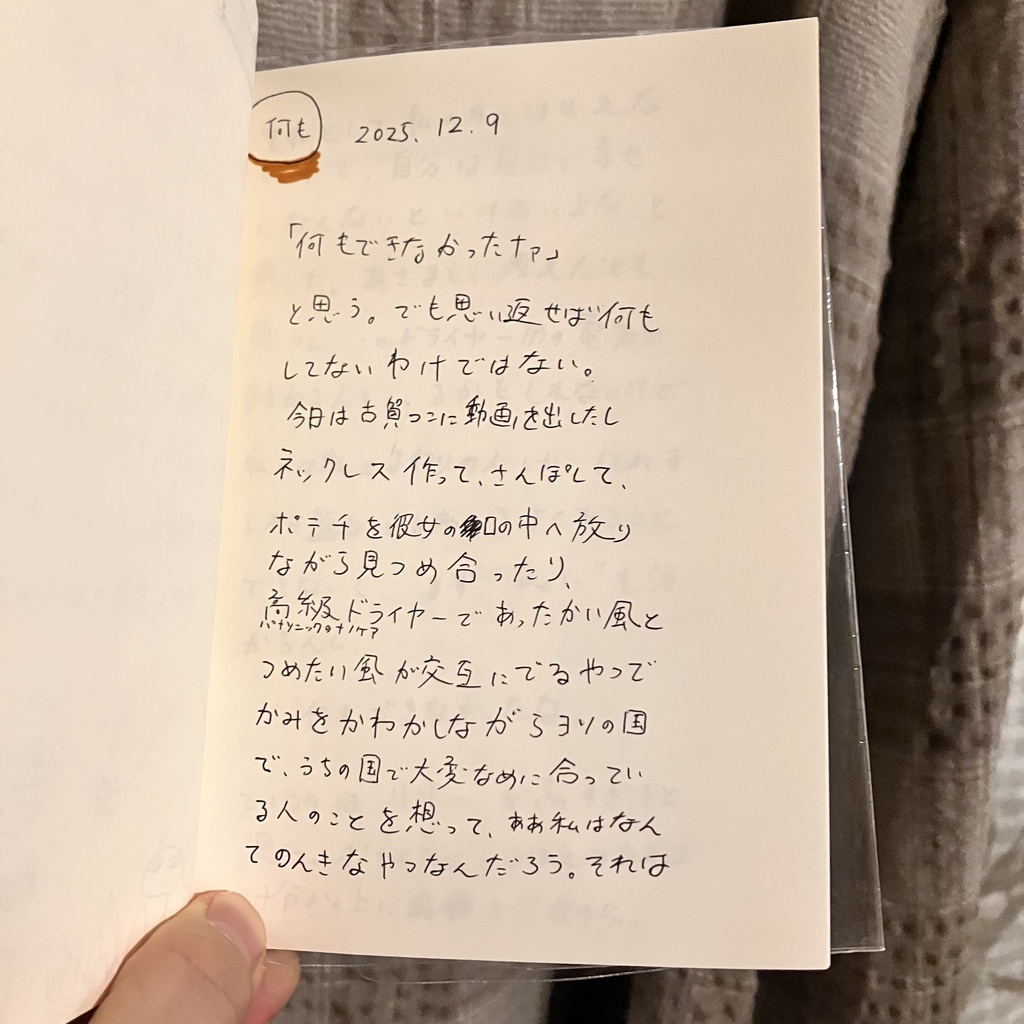 何も 2025.12.9
「何もできなかったナァ」
と思う。でも思い返せば何も
してないわけではない。
今日は古賀コンに動画を出したし
ネックレス作って、さんぽして、
ポテチを彼女の口の中へ放り
ながら見つめ合ったり、
高級ドライヤーであったかい風と
パナソニックのナノケア
つめたい風が交互にでるやつで
かみをかわかしながらヨソの国
で、うちの国で大変なめに合ってい
る人のことを想って、ああ私はなん
てのんきなやつなんだろう。それは